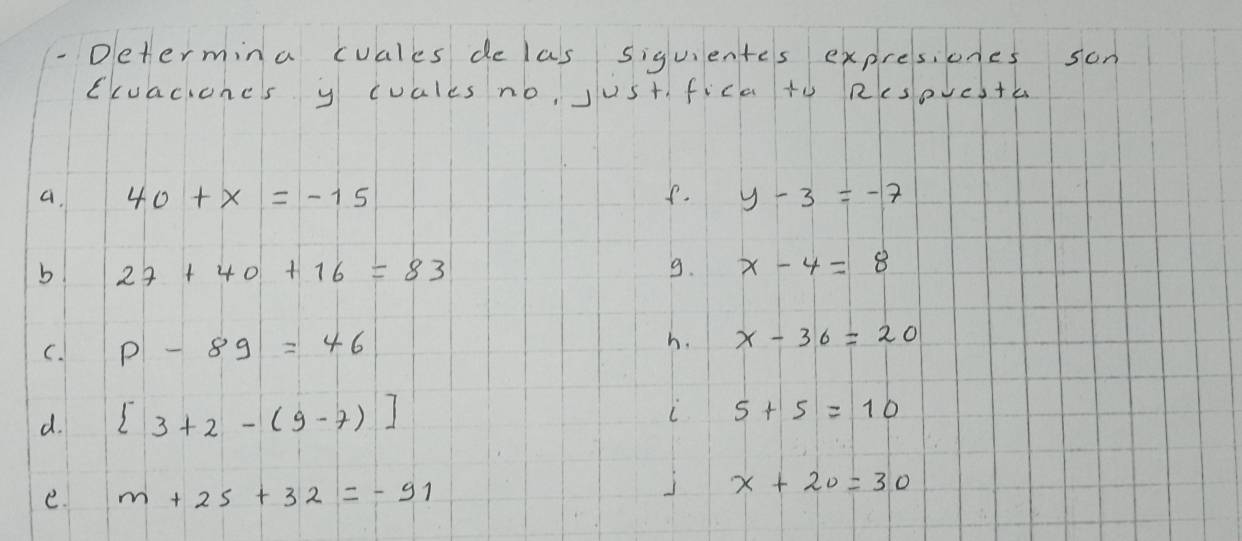 - Determina cuales de las siguientes expresiones son
Ecuaciones y cuales no, Justifica tu Respuesta
a. 40 + x = -15
b 27 + 40 + 16 = 83
c. p - 89 = 46
d. [3+2 - (9-7)]
e. m + 25 + 32 = -91
f. y - 3 = -7
g. x - 4 = 8
h. x - 36 = 20
i 5 + 5 = 10
j x + 20 = 30